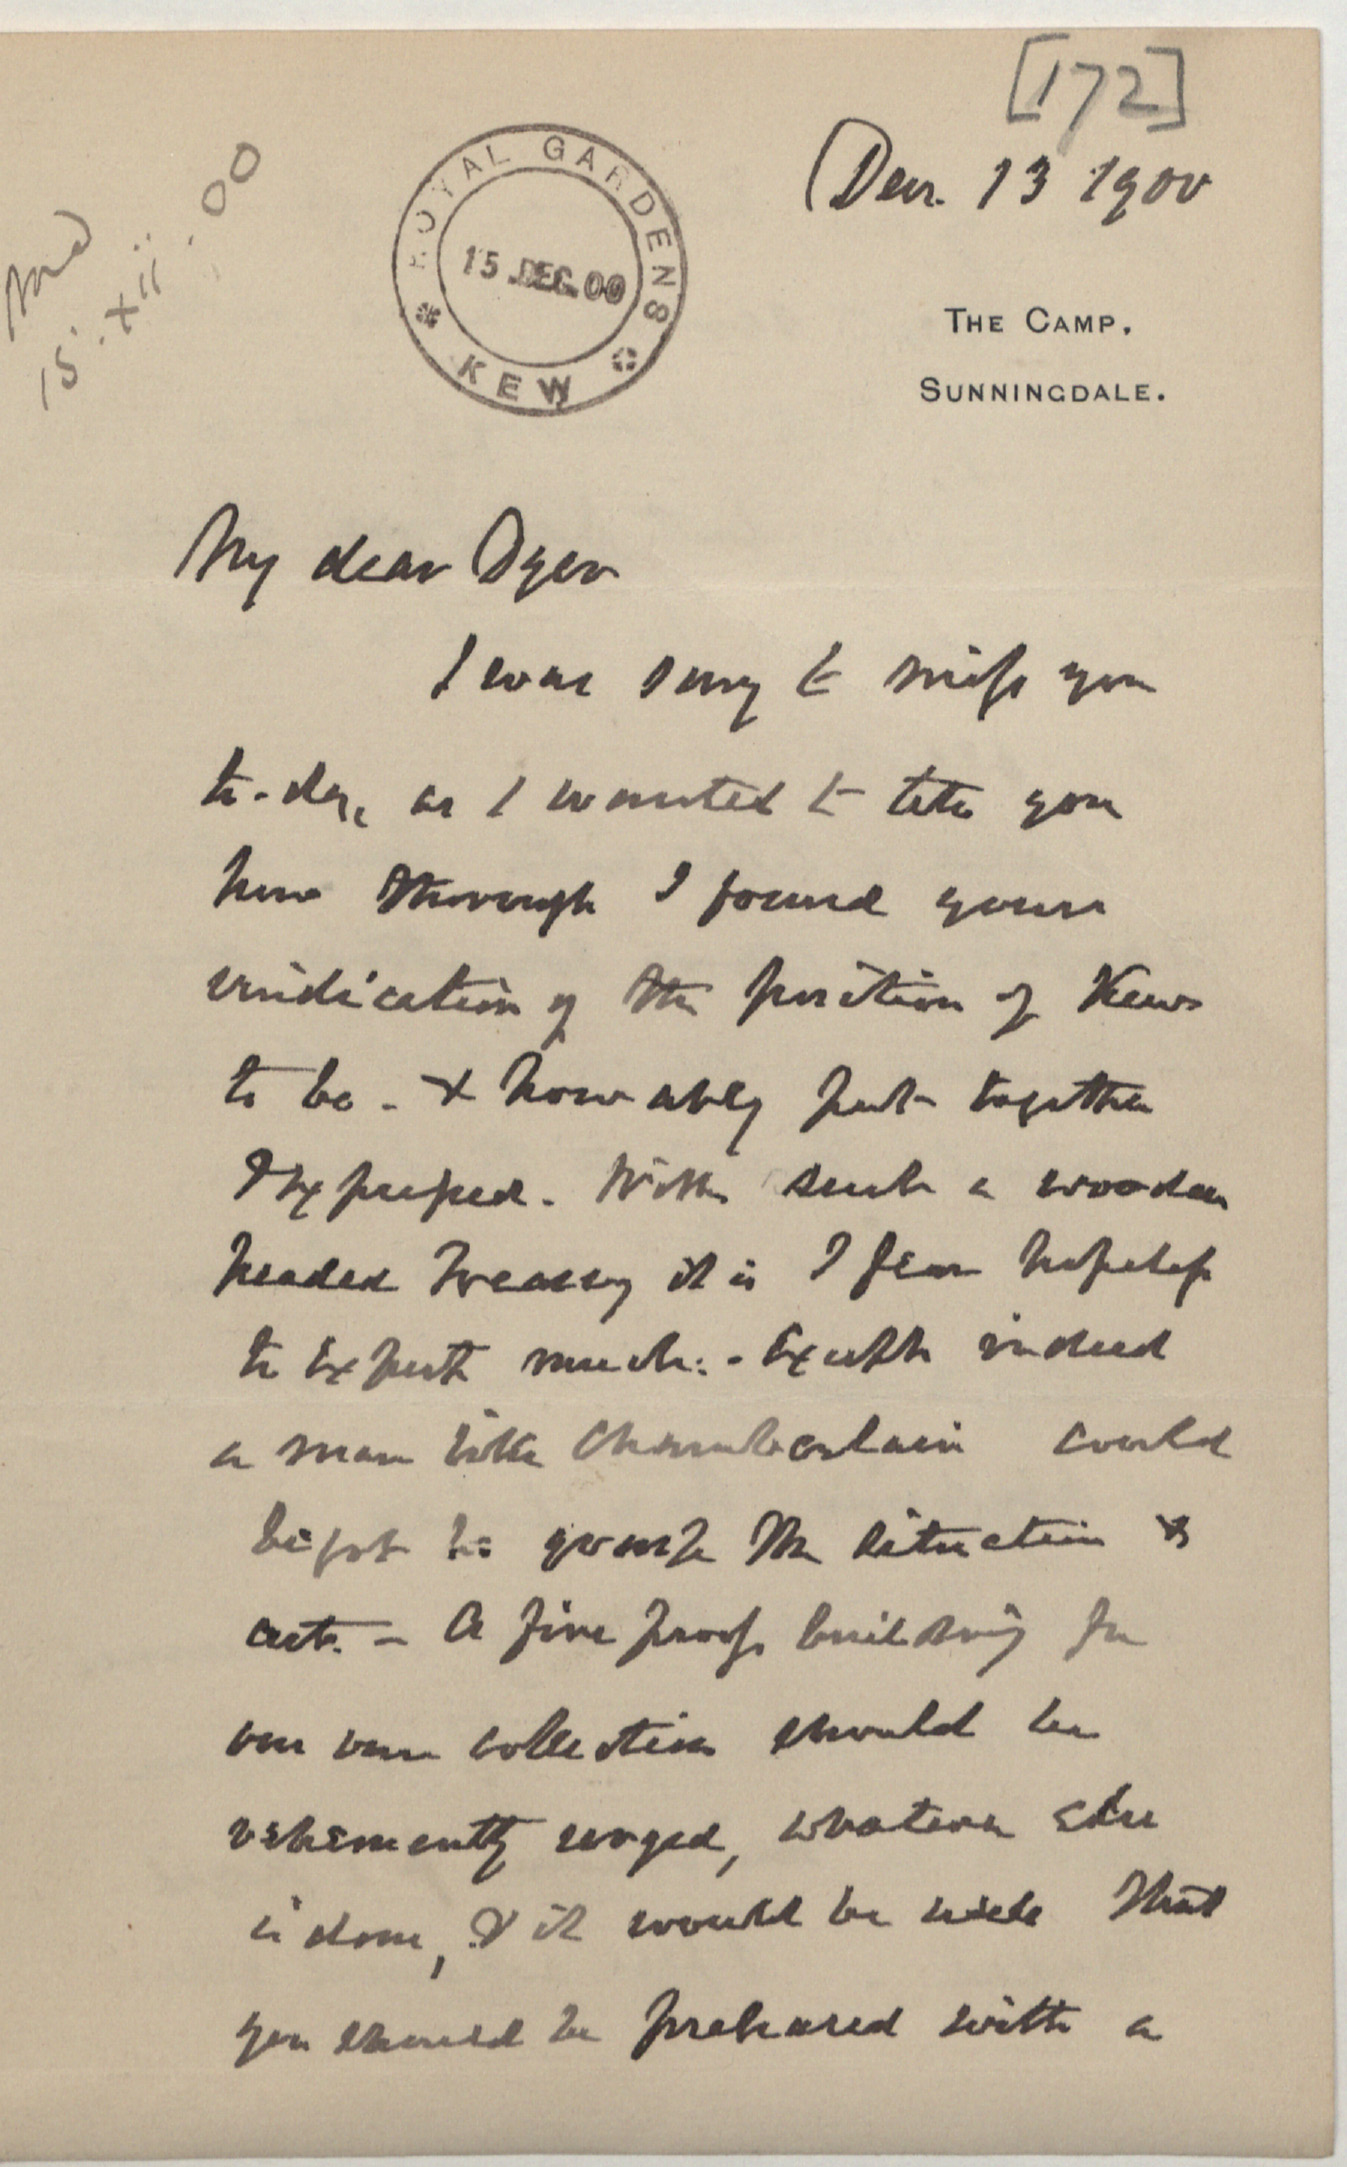 [172]
Decr. 13 1900
ROYAL GARDENS
15 DEC. 00
KEW
15.xii.00
THE CAMP,
SUNNINGDALE.
My dear Dyer
I was sorry to miss you
to-day, as I wanted to tell you
how thorough I found your
vindication of the position of Kew
to be - & how ably put together
& expressed. With such a wooden
headed Treasury it is I fear hopeless
to expect much: - Except indeed
a man like Chamberlain could
be got to grasp the situation &
act. - A fire proof building for
our own collection should be
vehemently urged, whatever else
is done, & it would be well that
you should be prepared with a